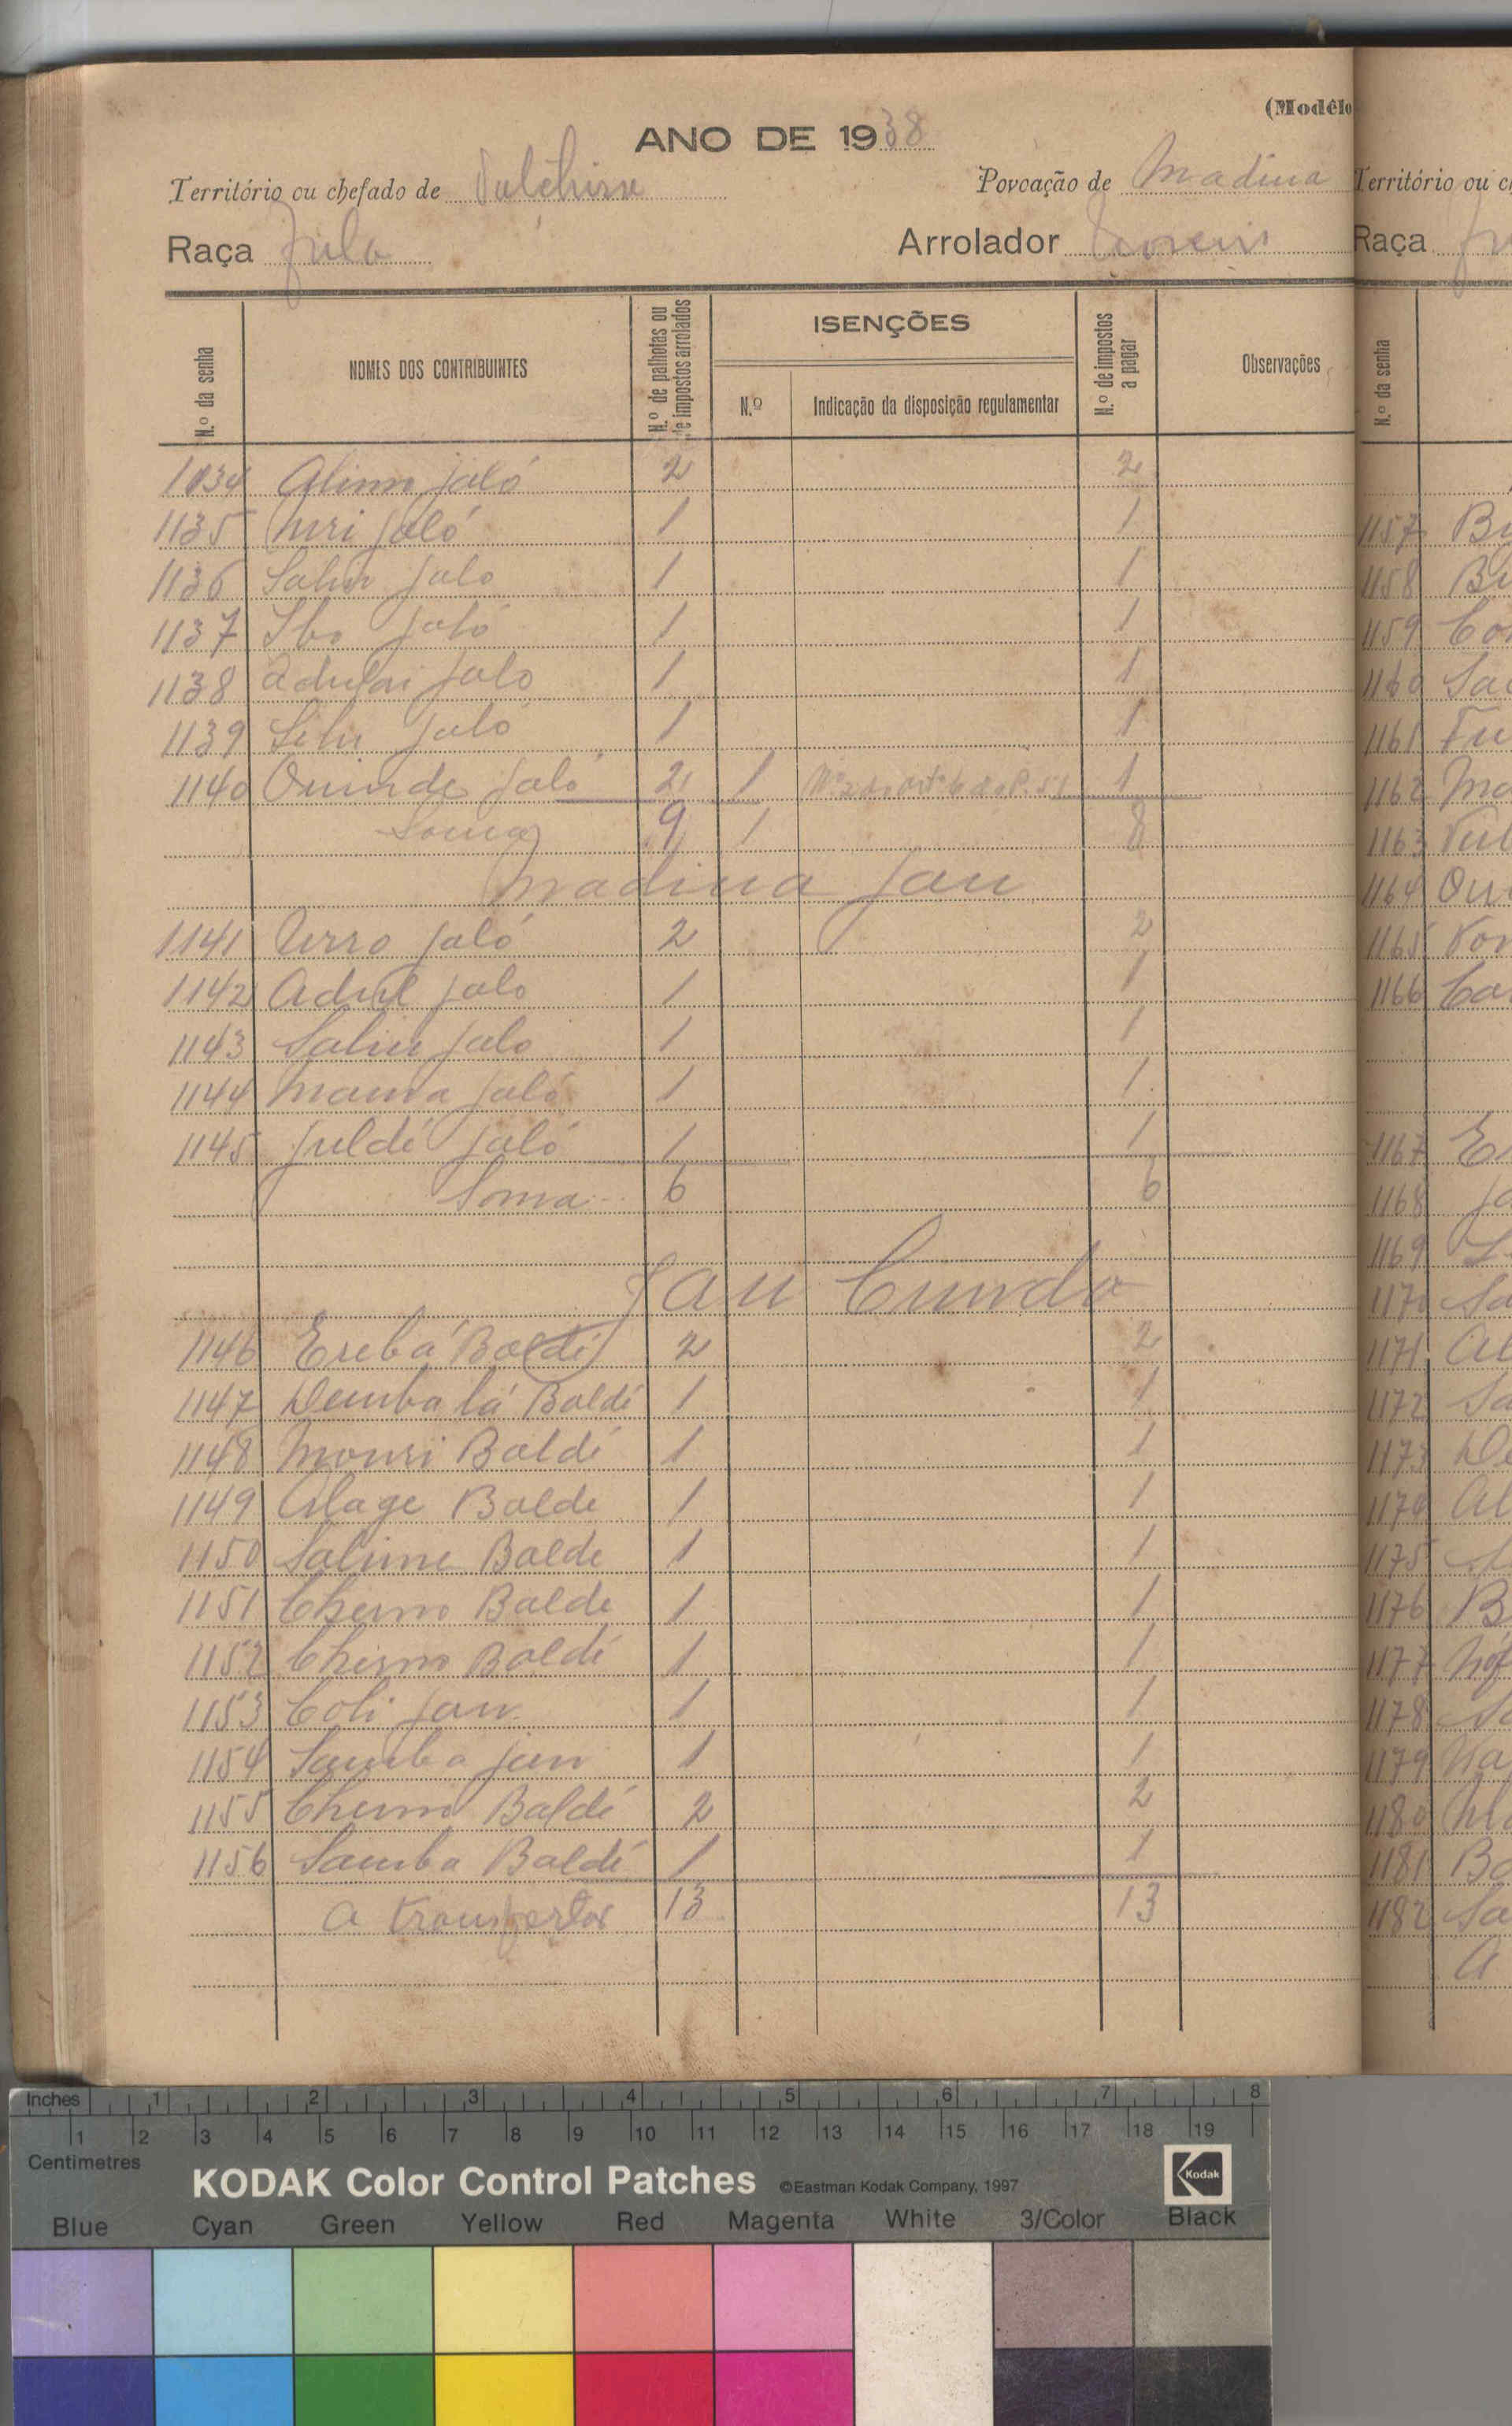 (Modêlo
ANO DE 1938
Território ou chefado de
Povoação de Madina
Raça Fula
Arrolador
N.º da senha
NOMES DOS CONTRIBUINTES
N.º de palhotas ou de impostos arrolados
ISENÇÕES
N.º
Indicação da disposição regulamentar
N.º de impostos a pagar
Observações
1034 Jaló 2 2
1135 Juri Jaló 1 1
1136 Saliu Jalo 1 1
1137 Ibo Jaló 1 1
1138 Adulai Jalo 1 1
1139 Jaló 1 1
1140 Jaló 2 1 1
Soma 9 1 8
Madina Jau
1141 Urro Jaló 2 2
1142 Adul Jalo 1 1
1143 Saliu Jalo 1 1
1144 Mama Jaló 1 1
1145 Juldé Jaló 1 1
Soma 6 6
Jau Cunda
1146 Erebá Baldé 2 2
1147 Demba lá Baldé 1 1
1148 Mouri Baldé 1 1
1149 Alage Balde 1 1
1150 Salime Balde 1 1
1151 Cherno Balde 1 1
1152 Cherno Baldé 1 1
1153 Coli Jau 1 1
1154 Samba Jau 1 1
1155 Cherno Baldé 2 2
1156 Samba Baldé 1 1
A transportar 13 13
Território ou c
Raça
N.º da senha
1157
1158
1159
1160
1161
1162
1163
1164
1165
1166
1167
1168
1169
1170
1171
1172
1173
1174
1175
1176
1177
1178
1179
1180
1181
1182
A
Inches 1 2 3 4 5 6 7 8
1 2 3 4 5 6 7 8 9 10 11 12 13 14 15 16 17 18 19
Centimetres
KODAK Color Control Patches ©Eastman Kodak Company, 1997 Kodak
Blue Cyan Green Yellow Red Magenta White 3/Color Black